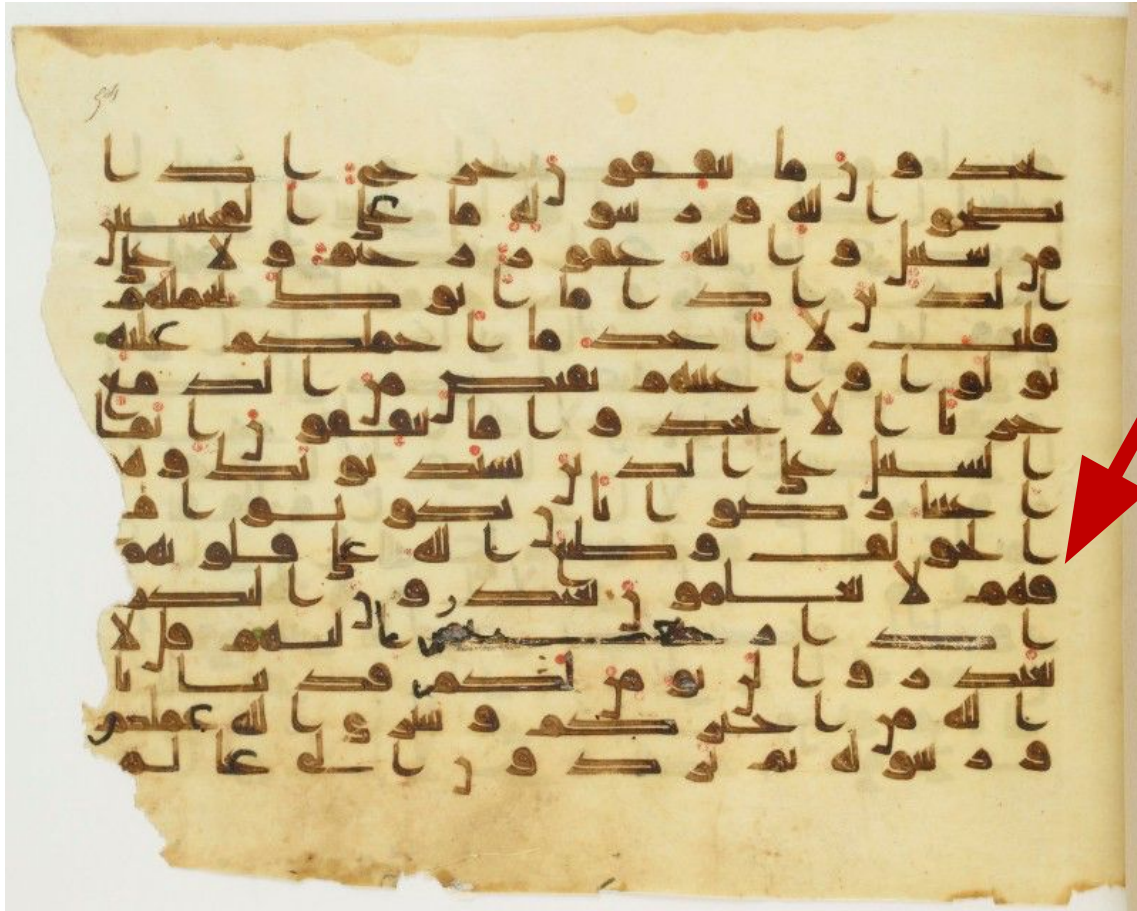 يجدون ما ينفقون حرج إذا
نصحوا لله ورسوله ما على المحسنين
من سبيل والله غفور رحيم ولا على
الذين إذا ما أتوك لتحملهم
قلت لا أجد ما أحملكم عليه
تولوا وأعينهم تفيض من الدمع
حزنا ألا يجدوا ما ينفقون إنما
السبيل على الذين يستذنونك وهم
أغنيا رضوا بأن يكونوا مع
الخولف وطبع الله على قلوبهم
فهم لا يعلمون يعتذرون إليكم
إذا رجعتم إليهم قل لا
تعتذروا لن نؤمن لكم قد نبأنا
الله من أخباركم وسيرى الله عملكم
ورسوله ثم تردون إلى عالم